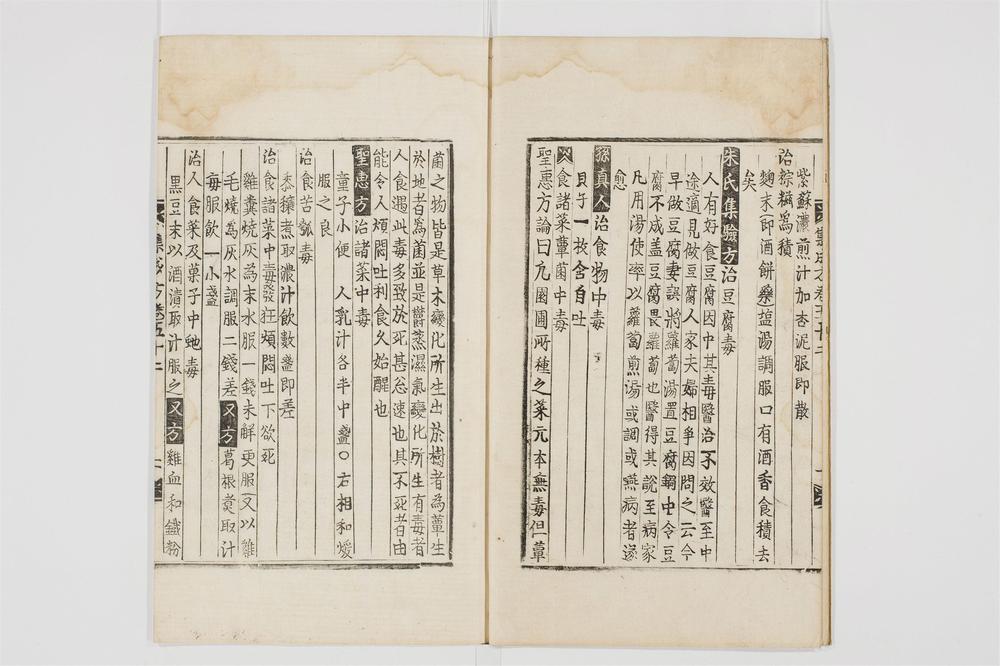 集成方卷五十二
紫蘇濃煎汁加杏泥服即散
治粽糍爲積
麴末即酒餅藥塩湯調服口有酒香食積去
矣
朱氏集驗方治豆腐毒
人有好食豆腐因中其毒醫治不效醫至中
途適見做豆腐人家夫婦相爭因問之云今
早做豆腐妻誤將蘿蔔湯置豆腐鍋中令豆
腐不成盖豆腐畏蘿蔔也醫得其說至病家
凡用湯使率以蘿蔔煎湯或調或嚥病者遂
愈
孫真人治食物中毒
貝子一枚含自吐
又食諸菜蕈菌中毒
聖惠方論曰凡園圃所種之菜元本無毒但蕈
菌之物皆是草木變化所生出於樹者為蕈生
於地者為菌並是欝蒸濕氣變化所生有毒者
人食遇此毒多致於死甚忿速也其不死者由
能令人煩悶吐利食久始醒也
聖惠方治諸菜中毒
童子小便 人乳汁各半中盞○右相和煖
服之良
治食苦瓠毒
黍穰煮取濃汁飲數盞即差
治食諸菜中毒發狂煩悶吐下欲死
雞糞燒灰為末水服一錢未解更服又以雞
毛燒為灰水調服二錢差又方葛根煮取汁
每服飲一小盞
治人食菜及菓子中虵毒
黑豆末以酒漬取汁服之又方雞血和鐵粉
集成方卷五十二